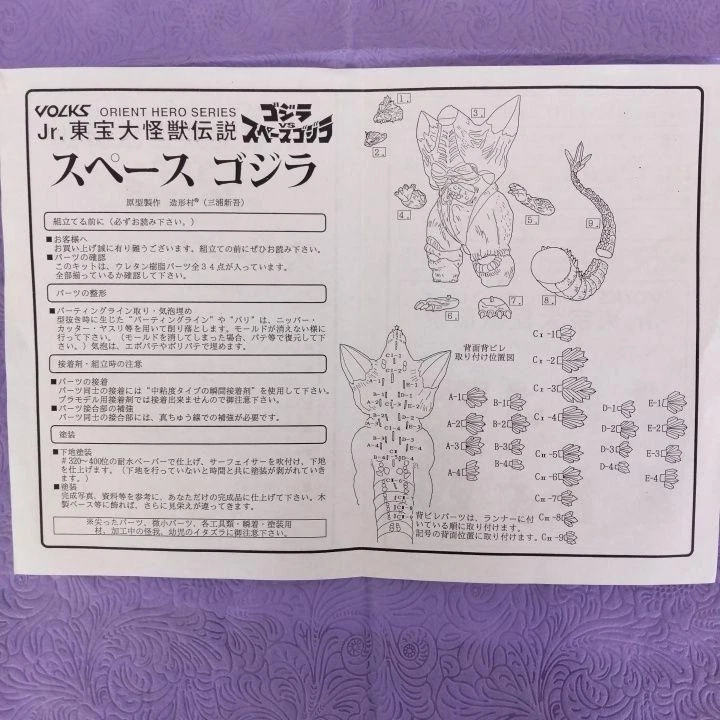 VOLKS ORIENT HERO SERIES
Jr.東宝大怪獣伝説
ゴジラ
VS
スペースゴジラ
スペース ゴジラ
原型製作 造形村®（三浦新吾）
組立てる前に（必ずお読み下さい。）
■お客様へ
お買い上げ誠に有り難うございます。組立ての前にぜひお読み下さい。
■パーツの確認
このキットは、ウレタン樹脂パーツ全３４点が入っています。
全部揃っているか確認して下さい。
パーツの整形
■パーティングライン取り・気泡埋め
型抜き時に生じた“パーティングライン”や“バリ”は、ニッパー・
カッター・ヤスリ等を用いて削り落とします。モールドが消えない様に
行って下さい。（モールドを消してしまった場合、パテ等で復元して下
さい。）気泡は、エポパテやポリパテで埋めます。
接着剤・組立時の注意
■パーツの接着
パーツ同士の接着には“中粘度タイプの瞬間接着剤”を使用して下さい。
プラモデル用接着剤では接着出来ませんので御注意下さい。
■パーツ接合部の補強
パーツ同士の接合部には、真ちゅう線での補強が必要です。
塗装
■下地塗装
＃320～400位の耐水ペーパーで仕上げ、サーフェイサーを吹付け、下地
を仕上げます。（下地を行っていないと時間と共に塗装が剥がれていき
ます。）
■塗装
完成写真、資料等を参考に、あなただけの完成品に仕上げて下さい。木
製ベース等に飾れば、さらに見栄えが違ってきます。
※尖ったパーツ、微小パーツ、各工具類・瞬着・塗装用
材、加工中の怪我、幼児のイタズラに御注意下さい。
1.
2.
3.
4.
5.
6.
7.
8.
9.
背面背ビレ
取り付け位置図
CI-1
CI-2
CI-3
CI-4
CII-5
CII-6
CII-7
CII-8
CII-9
A-1
A-2
A-3
A-4
B-1
B-2
B-3
B-4
D-1
D-2
D-3
D-4
E-1
E-2
E-3
E-4
背ビレパーツは、ランナーに付
いている順に取り付けます。
記号の背面位置に取り付けます。